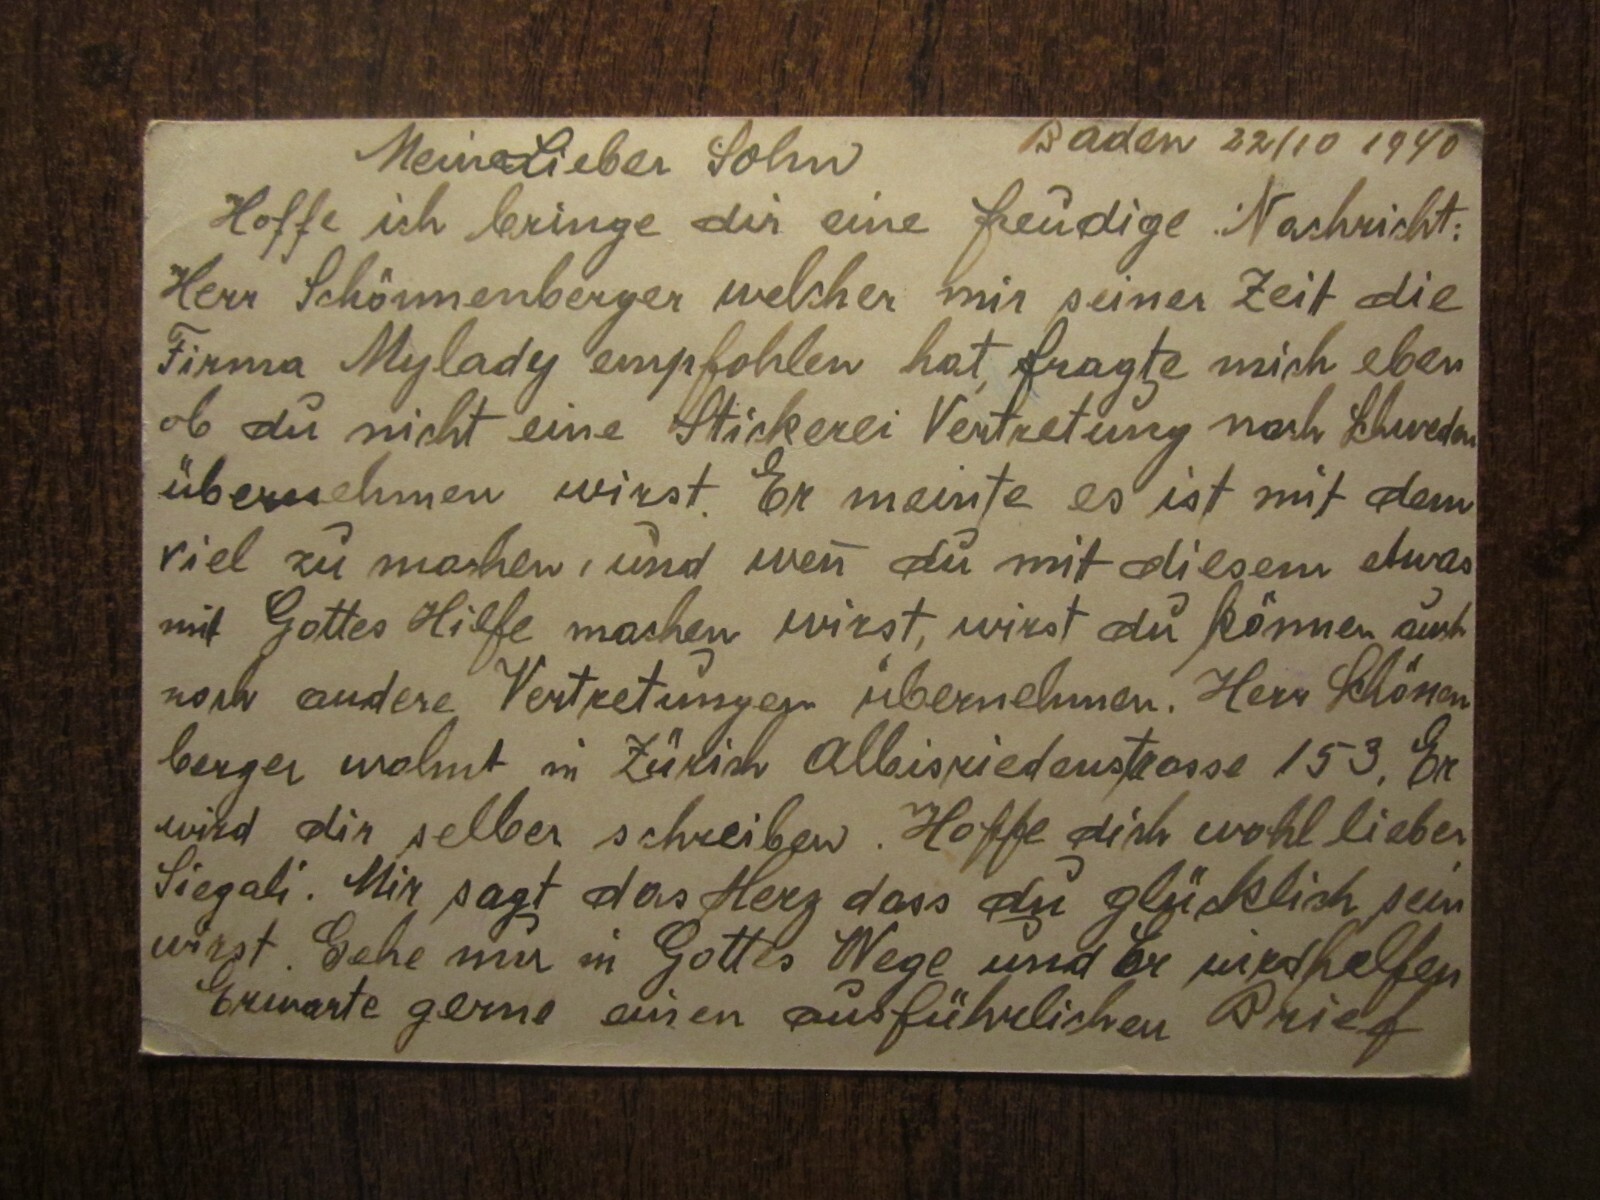 Baden 22/10 1940
Meine Lieber Sohn
Hoffe ich bringe dir eine freudige Nachricht:
Herr Schönnenberger welcher mir seiner Zeit die
Firma Mylady empfohlen hat, fragte mich eben
ob du nicht eine Stickerei Vertretung nach Schweden
übernehmen wirst. Er meinte es ist mit dem
viel zu machen, und wen̄ du mit diesem etwas
mit Gottes Hilfe machen wirst, wirst du können auch
noch andere Vertretungen übernehmen. Herr Schönen
berger wohnt in Zürich Albisriedenstrasse 153. Er
wird dir selber schreiben. Hoffe dich wohl lieber
Siegali. Mir sagt das Herz dass du glücklich sein
wirst. Gehe nur in Gottes Wege und Er wird helfen
Erwarte gerne einen ausführlichen Brief